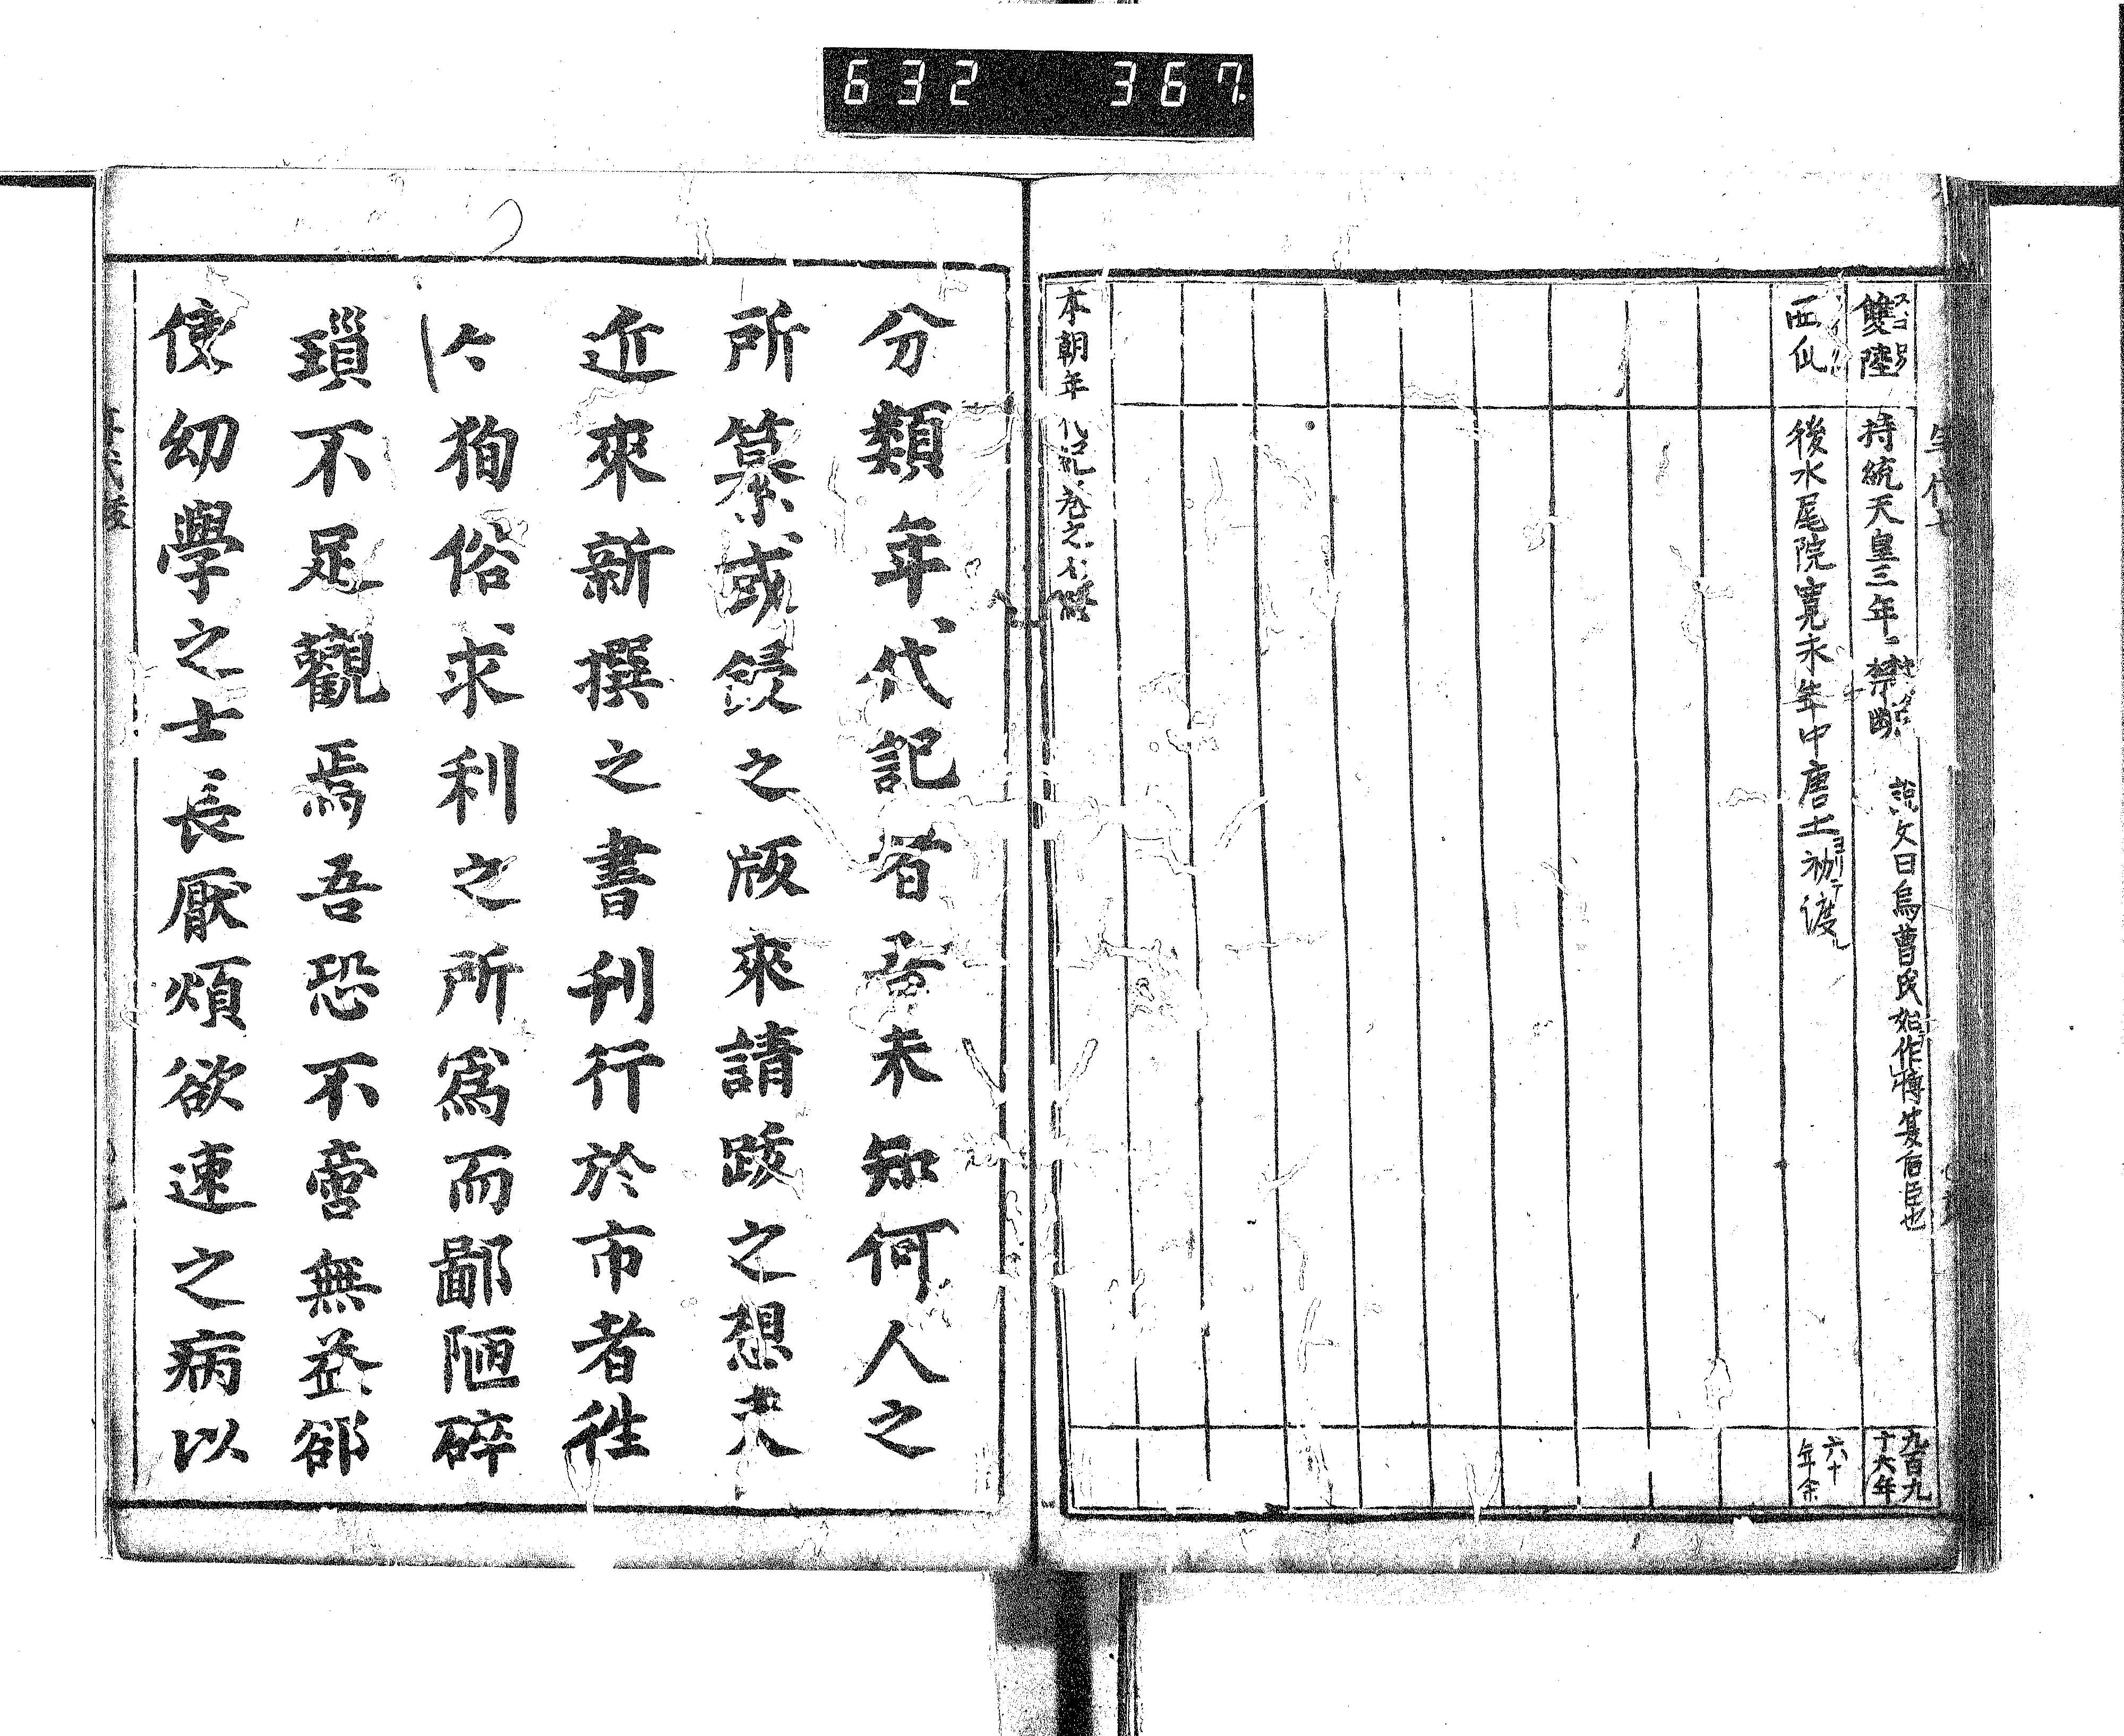 632 367
雙陸 スゴ六
持統天皇三年ニ禁断
說文曰烏曹氏始作博夏后臣也
九百九十六年
西瓜
後水尾院寬永年中唐土ヨリ初テ渡ル
六十年余
本朝年代記卷之
分類年代記者吾未知何人之
所纂或鋟之版來請跋之想夫
近來新撰之書刊行於市者徃
徇俗求利之所爲而鄙陋碎
瑣不足觀焉吾恐不啻無益卻
使幼學之士長厭煩欲速之病以